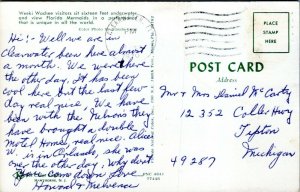 Weeki Wachee visitors sit sixteen feet underwater
and view Florida Mermaids in a performance
that is unique in all the world.
Color Photo
Hi! - Well we are in
Clearwater been here almost
a month. We were here
the other day. It has been
cool here but the last few
day real nice. We have
been with the
have bought a double
Motor Home, real nice. Alice
W. is in Orlando, she was
over the other day. Why don't
you come down
Howard &
POST CARD
Address
PLACE
STAMP
HERE
Mr & Mrs Daniel McCarty
12 352 Coller Hwy
Tipton
Michigan
49287
57445